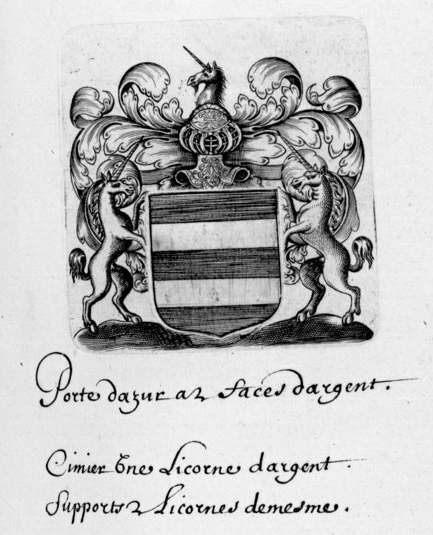 Porte dazur a 2 faces dargent.
Cimier Vne Licorne dargent.
Supports 2 Licornes demesme.